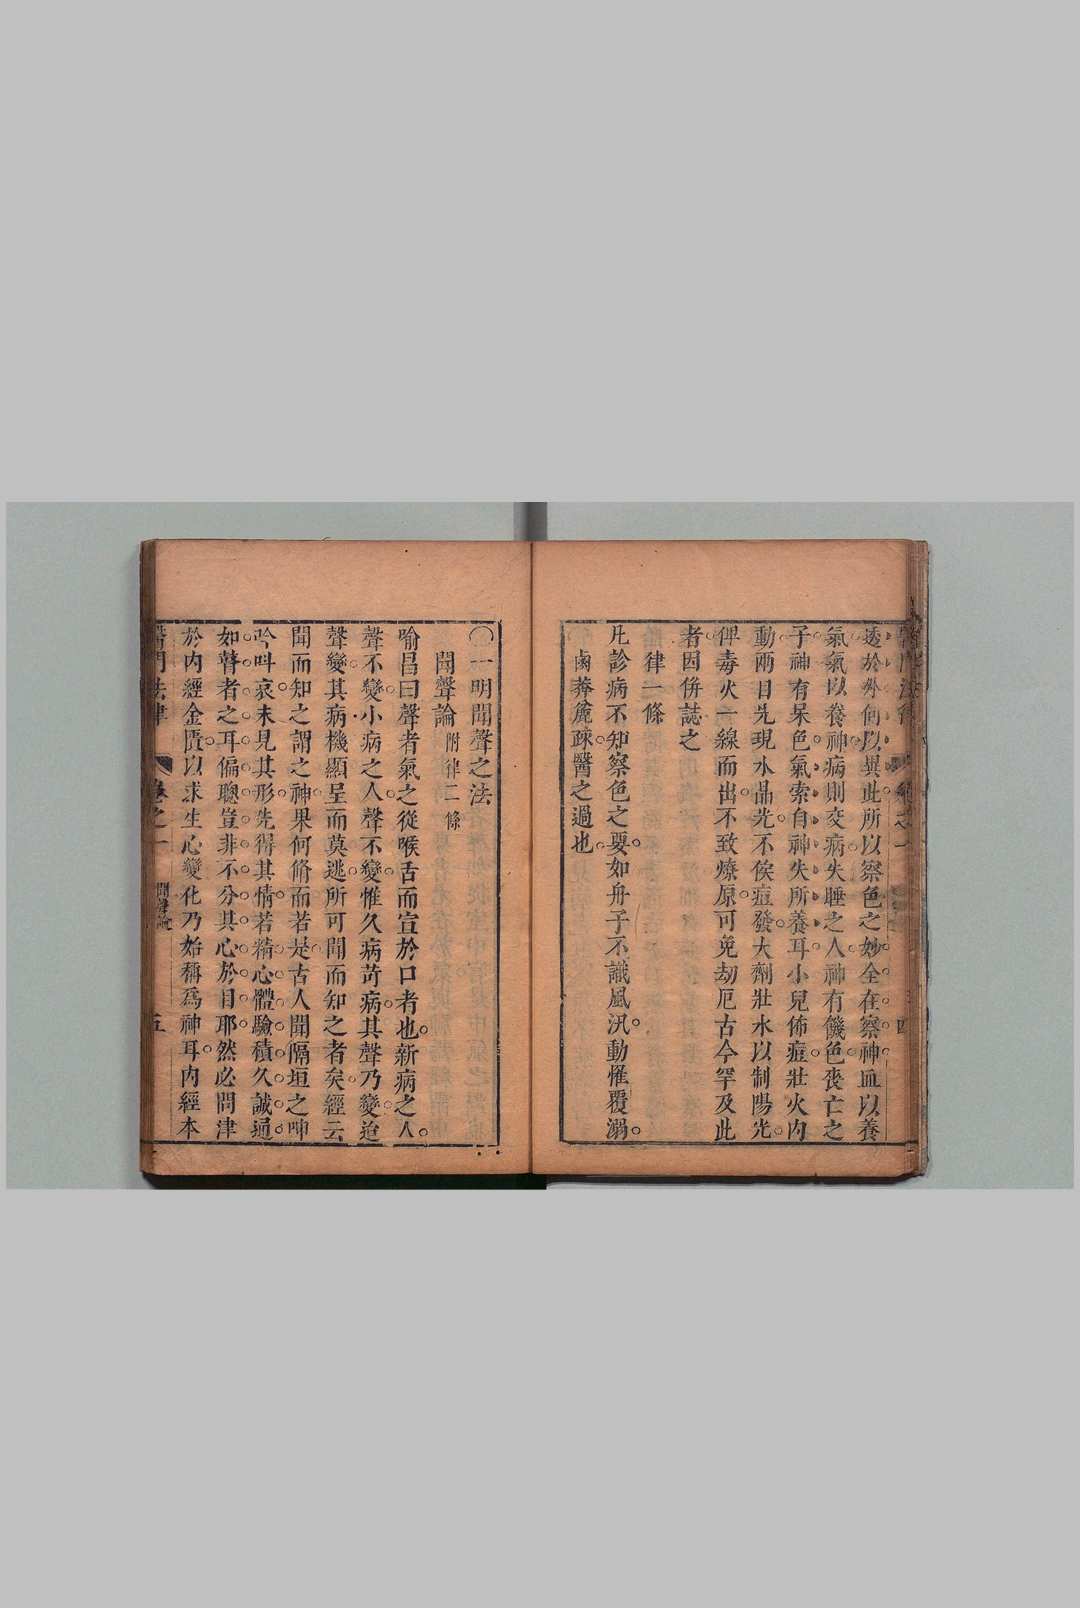 透於外何以異此所以察色之妙全在察神血以養
氣氣以養神病則交病失睡之人神有饑色喪亡之
子神有呆色氣索自神失所養耳小兒佈痘壯火內
動兩目先現水晶光不俟痘發大劑壯水以制陽光
俾毒火一線而出不致燎原可免劫厄古今罕及此
者因倂誌之
律一條
凡診病不知察色之要如舟子不識風汛動惟覆溺
鹵莽麁疎醫之過也
〇一明聞聲之法
聞聲論附律二條
喻昌曰聲者氣之從喉舌而宣於口者也新病之人
聲不變小病之人聲不變惟久病苛病其聲乃變迨
聲變其病機顯呈而莫逃所可聞而知之者矣經云
聞而知之謂之神果何脩而若是古人聞隔垣之呻
吟叫哀未見其形先得其情若精心體驗積久誠通
如瞽者之耳偏聰豈非不分其心於目耶然必問津
於內經金匱以求生心變化乃始稱爲神耳內經本
醫門法律 卷之一 聞聲論 五